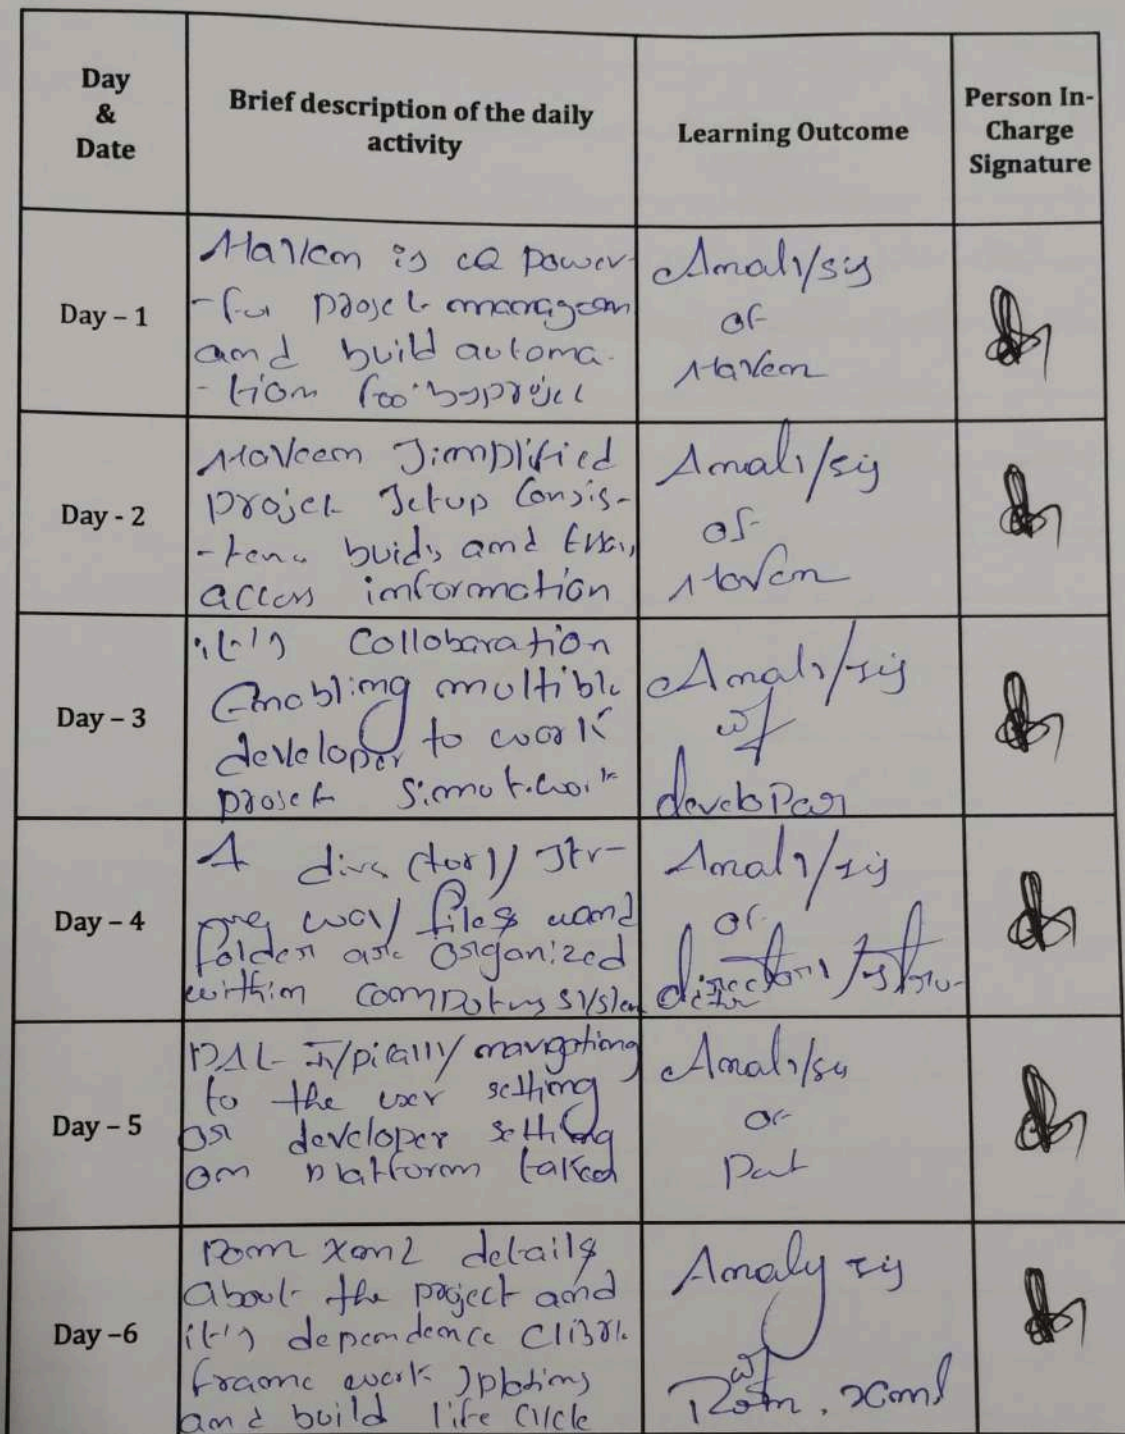 Day
&
Date
Brief description of the daily
activity
Learning Outcome
Person In-
Charge
Signature
Day – 1
Maven is a power-
project
and build automa-
- tion
Analysis
of
Maven
Day - 2
Maven Simplified
project Setup Consis-
builds and
access information
Analysis
of
Maven
Day – 3
it's Collobaration
Enabling multible
developer to work
project
Analysis
of
developar
Day – 4
A directory Str-
way files and
folder are organized
within system
Analysis
of
directory
Day – 5
PAT Typically navigationg
to the user setting
or developer setting
on platform
Analysis
of
Pat
Day –6
Pom xml details
about the project and
it's dependence
frame work
and build life cycle
Analysis
of
Pom . xml